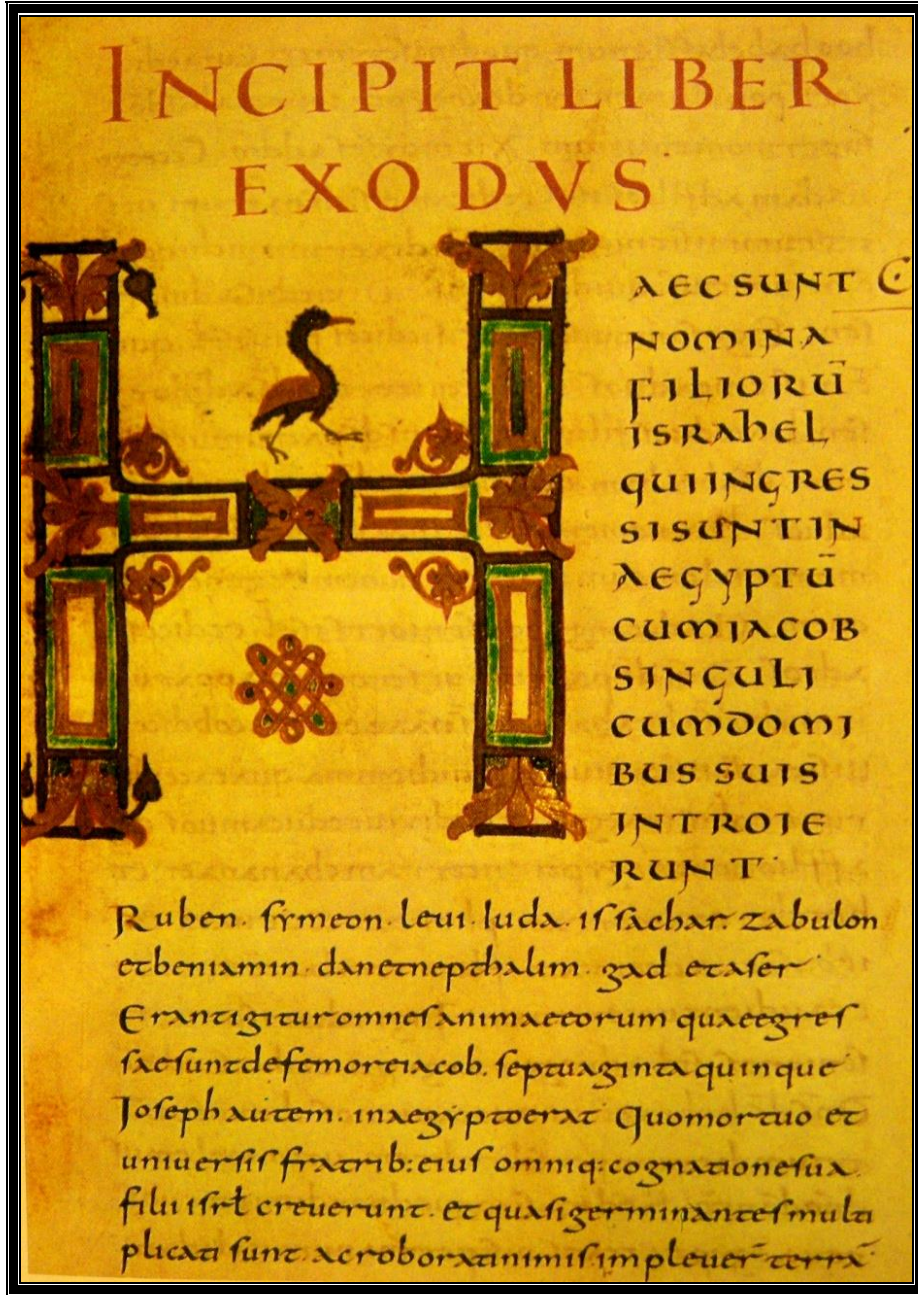 INCIPIT LIBER
EXODVS
HAEC SUNT
NOMINA
FILIORŪ
ISRAHEL
QUIINGRES
SISUNTIN
AEGYPTŪ
CUMIACOB
SINGULI
CUMDOMI
BUSSUIS
INTROIE
RUNT·
Ruben· sẏmeon· levi· Iuda· issachar· zabulon
etbeniamin· danetnepthalim· gad etaser
Erantigituromnesanimaeeorum quaeegres
saesuntdefemoreiacob· septuaginta quinque
Ioseph autem· inaegẏptoerat Quomortuo et
universis fratrib: eius omniq: cognationesua·
filii isrł creverunt· et quasigerminantes multi
plicati sunt· acroboratinimis implever̄ terrā